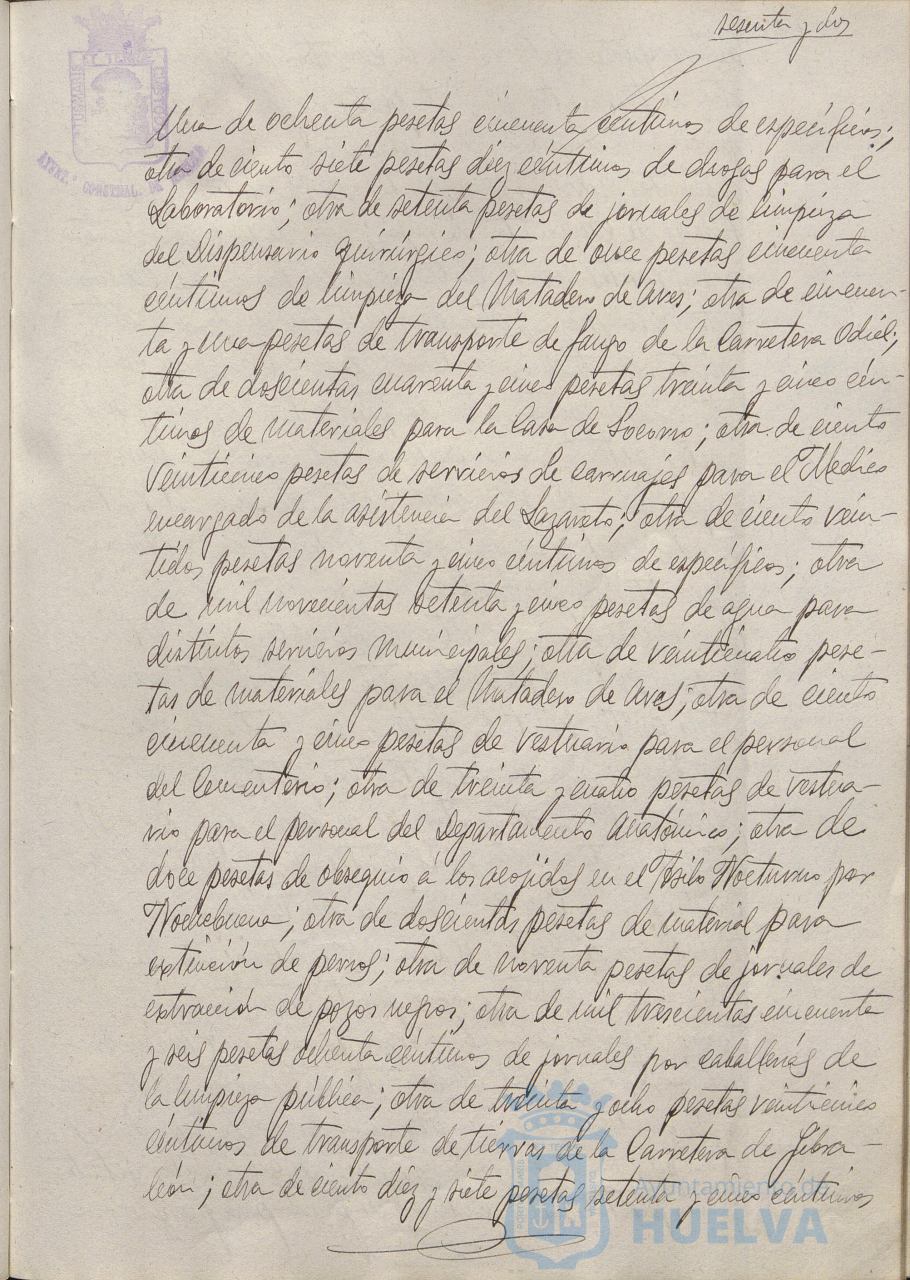 sesenta y dos
Una de ochenta pesetas cincuenta céntimos de específicos;
otra de ciento siete pesetas diez céntimos de drogas para el
Laboratorio; otra de setenta pesetas de jornales de limpieza
del Dispensario quirúrgico; otra de once pesetas cincuenta
céntimos de limpieza del Matadero de Aves; otra de cincuen-
ta y una pesetas de transporte de fango de la Carretera Odiel;
otra de doscientas cuarenta y cinco pesetas treinta y cinco cén-
timos de materiales para la Casa de Socorro; otra de ciento
veinticinco pesetas de servicios de carruajes para el Medico
encargado de la asistencia del Lazareto; otra de ciento vein-
tidos pesetas noventa y cinco céntimos de específicos; otra
de mil novecientas setenta y cinco pesetas de agua para
distintos servicios municipales; otra de veinticuatro pese-
tas de materiales para el Matadero de Aves; otra de ciento
cincuenta y cinco pesetas de vestuario para el personal
del Cementerio; otra de treinta y cuatro pesetas de vestua-
rio para el personal del Departamento Anatómico; otra de
doce pesetas de obsequio á los acojidos en el Asilo Nocturno por
Nochebuena; otra de doscientas pesetas de material para
extinción de perros; otra de noventa pesetas de jornales de
extracción de pozos negros; otra de mil trescientas cincuenta
y seis pesetas ochenta céntimos de jornales por caballerías de
la limpieza pública; otra de treinta y ocho pesetas veinticinco
céntimos de transporte de tierras de la Carretera de Gibra-
león; otra de ciento diez y siete pesetas setenta y cinco céntimos
Ayuntamiento de
HUELVA